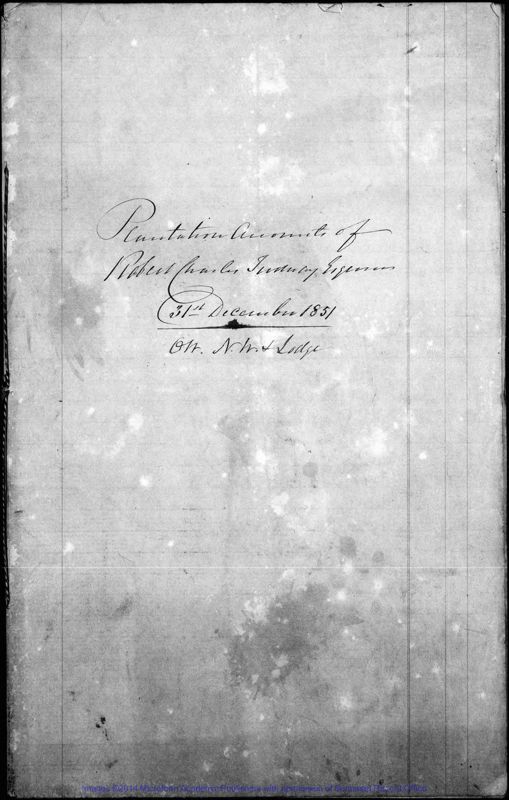 Plantation Accounts of
Robert Charles Tudway Esquire
31st December 1851
OW. N.W. & Lodge
Images ©2014 Microform Academic Publishers with permission of Somerset Record Office